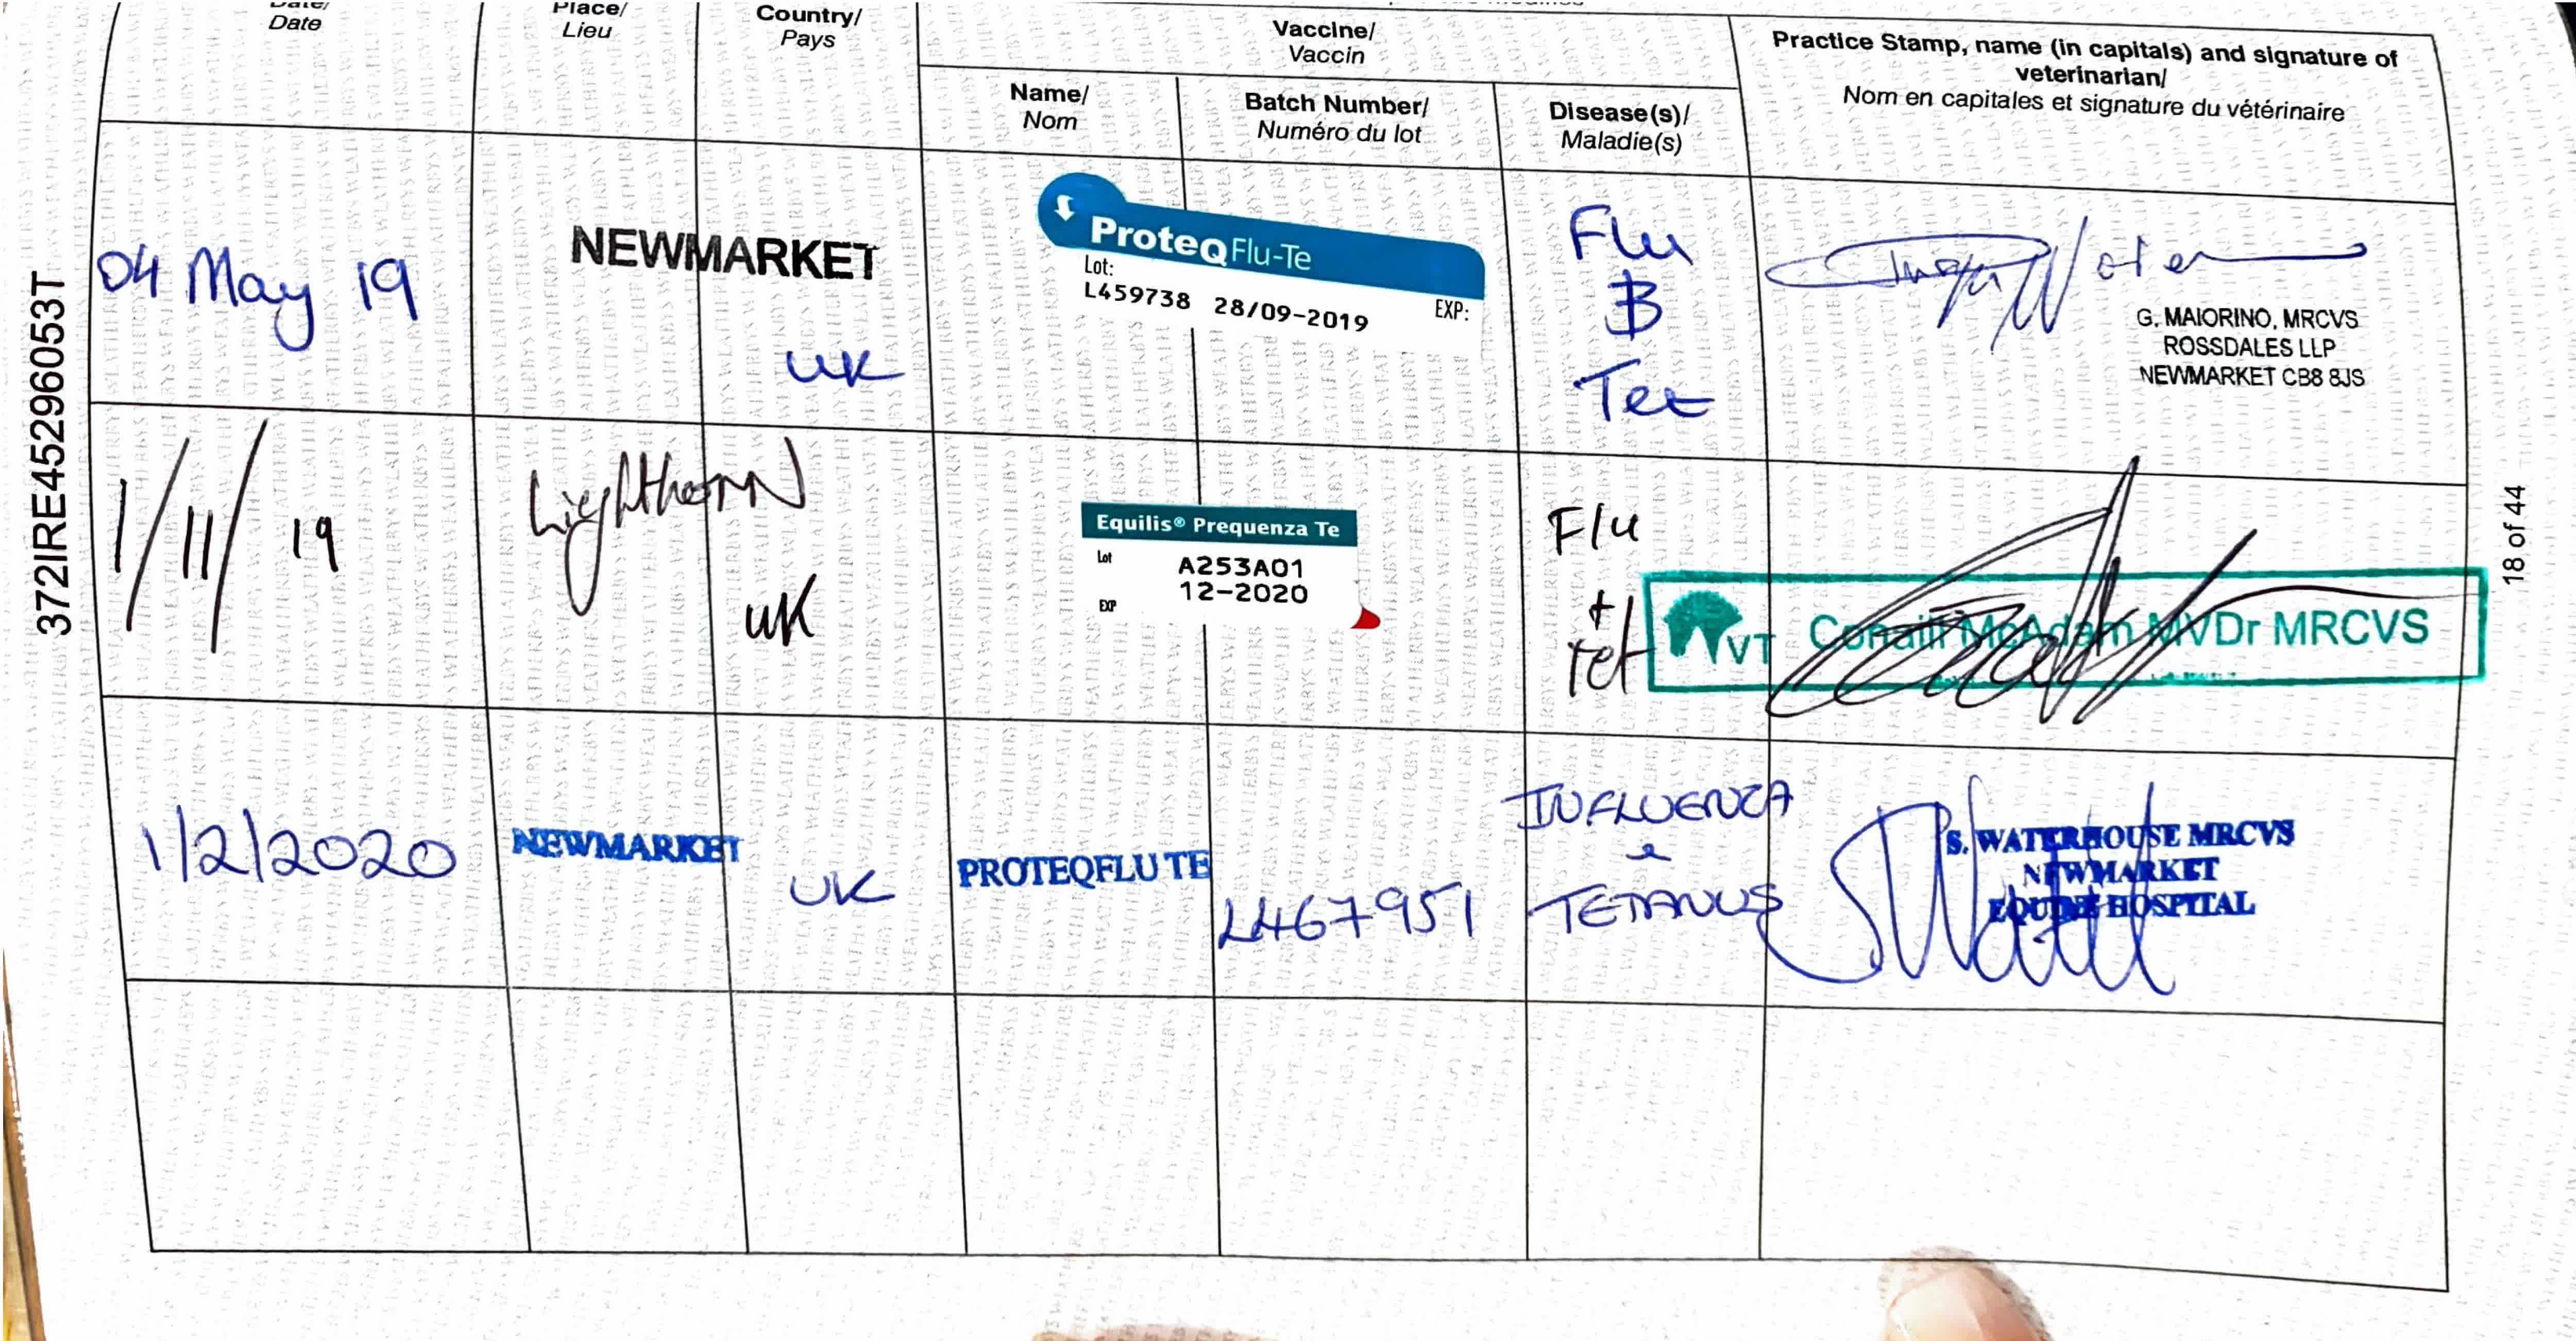 Date/
Date
Place/
Lieu
Country/
Pays
Vaccine/
Vaccin
Name/
Nom
Batch Number/
Numéro du lot
Disease(s)/
Maladie(s)
Practice Stamp, name (in capitals) and signature of
veterinarian/
Nom en capitales et signature du vétérinaire
372IRE45296053T
18 of 44
04 May 19
NEWMARKET
UK
ProteqFlu-Te
Lot:
L459738 28/09-2019 EXP:
Flu
Tet
G. MAIORINO, MRCVS
ROSSDALES LLP
NEWMARKET CB8 8JS
1/11/19
Lighthorn
UK
Equilis® Prequenza Te
Lot A253A01
12-2020
EXP
Flu
+
Tet
VT Conaill McAdam MVDr MRCVS
1/2/2020
NEWMARKET
UK
PROTEQFLU TE
L467951
INFLUENZA
TETANUS
S. WATERHOUSE MRCVS
NEWMARKET
EQUINE HOSPITAL